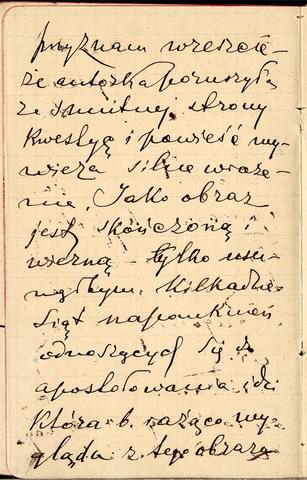 przyznam wreszcie –
że autorka poruszyła
ze smutnej strony
kwestyę i powieść wy-
wiera silne wraże-
nie. Jako obraz
jest skończoną i
wierną – tylko usu-
nęłbym kilkadzie-
siąt napomknień
odnoszących się do
apostołowania idei
która b. rażąco wy-
gląda z tego obrazu